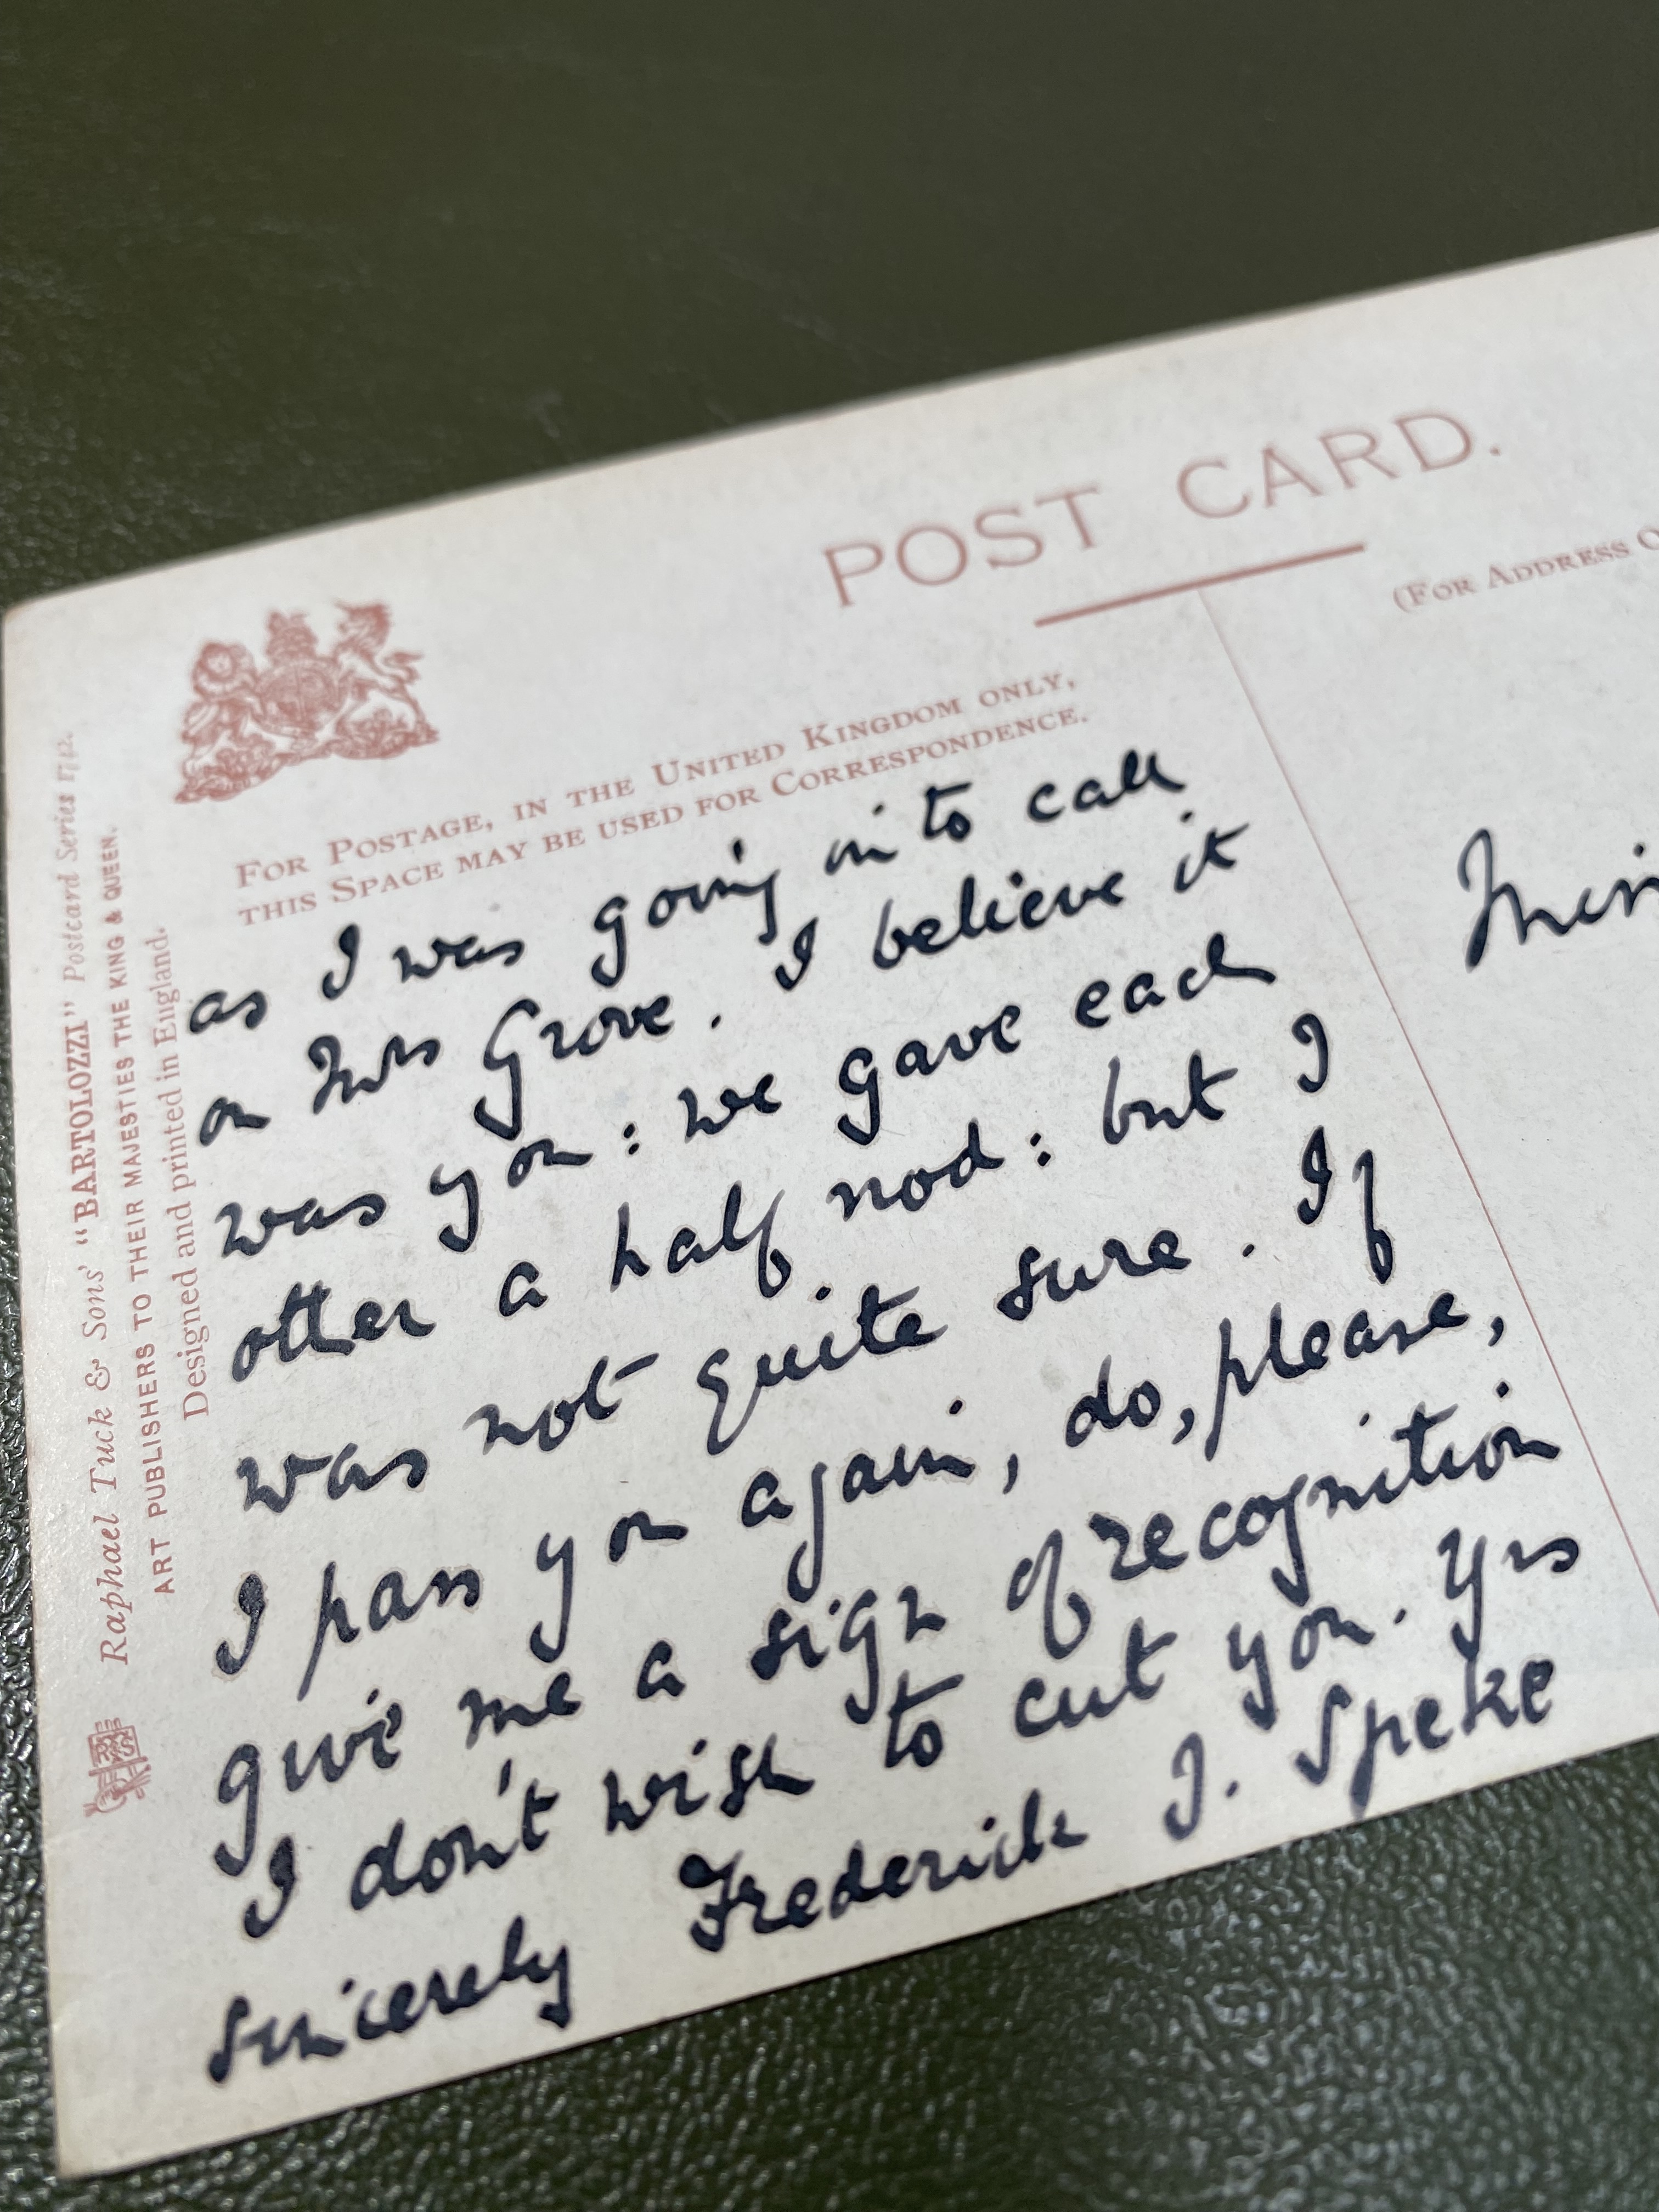 POST CARD.
(FOR ADDRESS O
FOR POSTAGE, IN THE UNITED KINGDOM ONLY,
THIS SPACE MAY BE USED FOR CORRESPONDENCE.
Raphael Tuck & Sons' "BARTOLOZZI" Postcard Series 1742.
ART PUBLISHERS TO THEIR MAJESTIES THE KING & QUEEN.
Designed and printed in England.
as I was going in to call
on Mrs Grove. I believe it
was you: we gave each
other a half nod: but I
was not quite sure. If
I pass you again, do, please,
give me a sign of recognition
I don't wish to cut you. Yrs
sincerely Frederick J. Speke